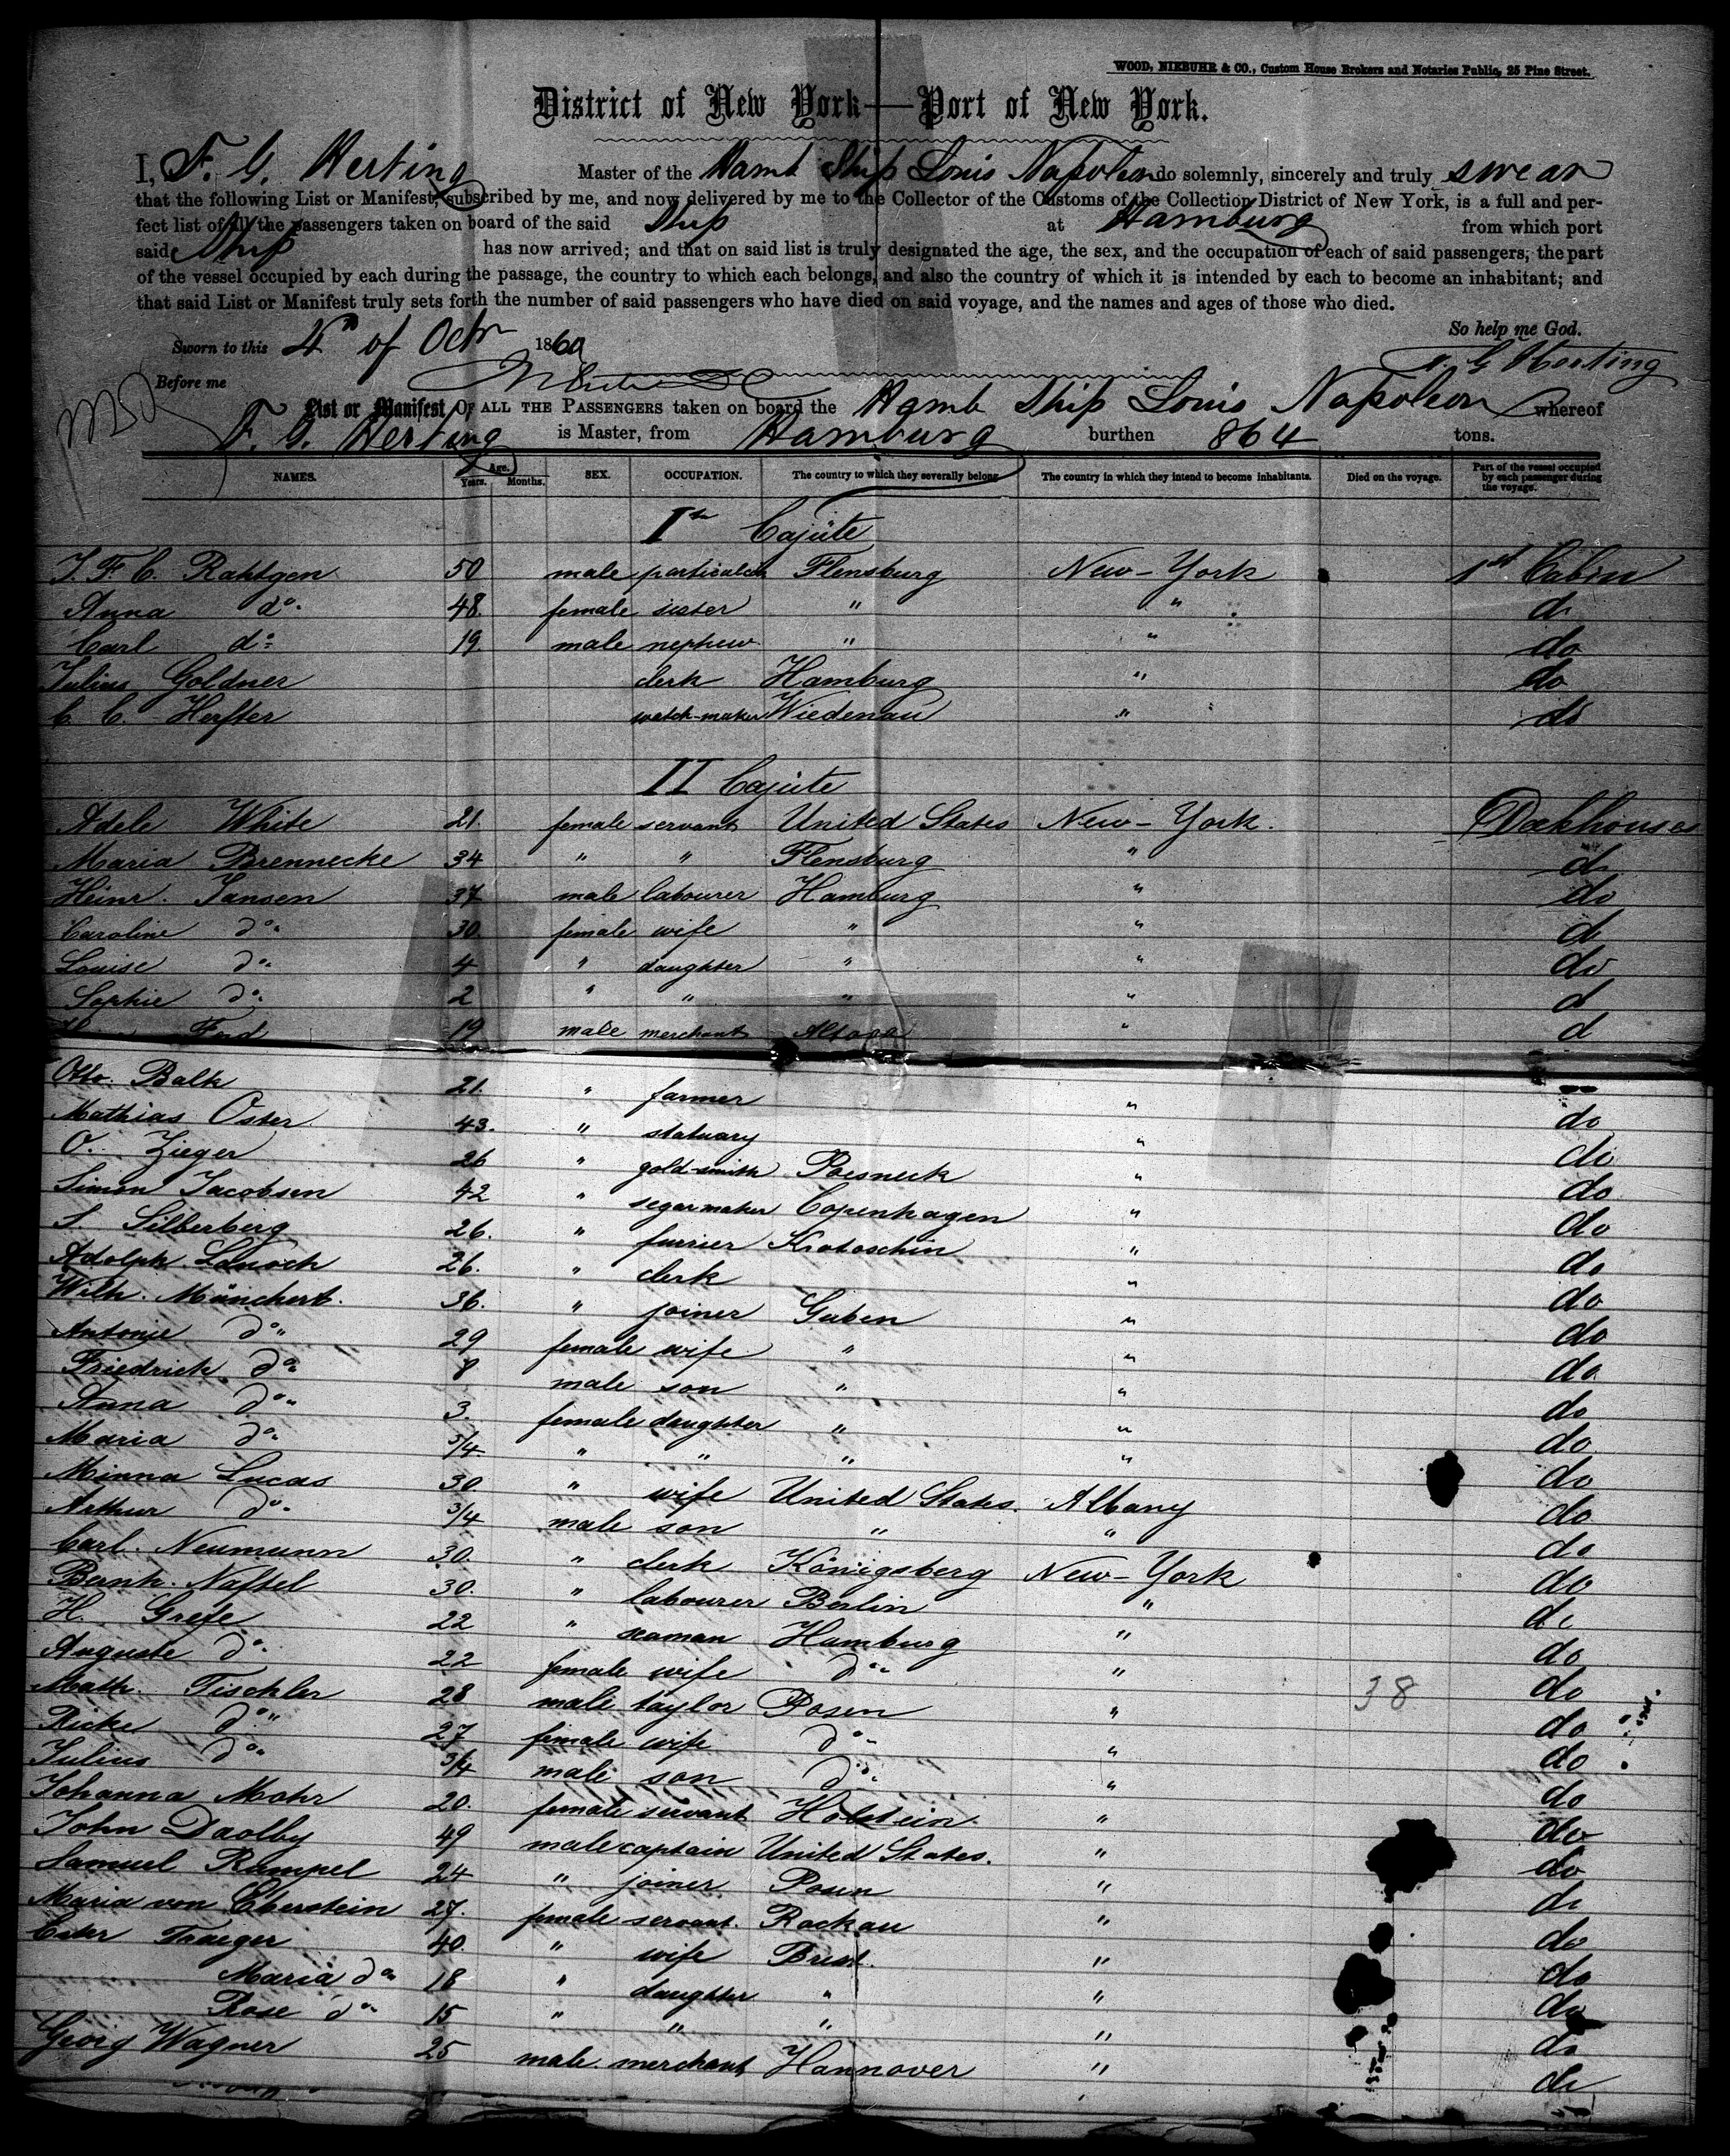 WOOD, NIEBUHR & CO., Custom House Brokers and Notaries Public, 25 Pine Street.
District of New York—Port of New York.
I, F. G. Herting Master of the Hamb Ship Louis Napoleon do solemnly, sincerely and truly swear
that the following List or Manifest, subscribed by me, and now delivered by me to the Collector of the Customs of the Collection District of New York, is a full and per-
fect list of all the passengers taken on board of the said Ship at Hamburg from which port
said Ship has now arrived; and that on said list is truly designated the age, the sex, and the occupation of each of said passengers, the part
of the vessel occupied by each during the passage, the country to which each belongs, and also the country of which it is intended by each to become an inhabitant; and
that said List or Manifest truly sets forth the number of said passengers who have died on said voyage, and the names and ages of those who died.
So help me God.
Sworn to this 4th of Octr 1860
F G Herting
Before me
List or Manifest OF ALL THE PASSENGERS taken on board the Hamb Ship Louis Napoleon whereof
F. G. Herting is Master, from Hamburg burthen 864 tons.
NAMES. Age. Years. Months. SEX. OCCUPATION. The country to which they severally belong. The country in which they intend to become inhabitants. Died on the voyage. Part of the vessel occupied by each passenger during the voyage.
Ite Cajüte
J. F. C. Rahtgen 50 male particulier Flensburg New-York 1st Cabin
Anna do. 48. female sister " " do
Carl do 19. male nephew. " " do
Julius Goldner clerk Hamburg " do
C. C. Herfter watch-maker Wiedenau " do
II Cajüte
Adele White 21. female servant United States New-York. Deckhouses
Maria Brennecke 34 " " Flensburg " do
Heinr. Jansen 37 male labourer Hamburg " do
Caroline do 30. female wife " " do
Louise do 4 " daughter " " do
Sophie do 2 " " " " d
Ferd 19 male merchant Altona " d
Otto Balk 21. " farmer "
Mathias Oster 43. " statuary " do
O. Zieger 26 " gold-smith Poesneck " do
Simon Jacobsen 42 " segarmaker Copenhagen " do
S. Silberberg 26. " furrier Krotoschin " do
Adolph 26. " clerk " do
Wilh. Münchert. 36. " joiner Guben " do
Antonie do 29 female wife " " do
Friedrich do 8 male son " " do
Anna do 3. female daughter " " do
Maria do 5/4 " " " " do
Minna Lucas 30 " wife United States. Albany do
Arthur do 3/4 male son " " do
Carl. Neumann 30. " clerk Königsberg New-York do
Bernh. Naftel 30. " labourer Berlin " do
H. Grefe 22 " seaman Hamburg " do
Auguste do 22 female wife do " do
Math. Tischler 28 male taylor Posen " 38 do
Ricke do 27 female wife do " do
Julius do 3/4 male son do " do
Johanna Mohr 20. female servant Holstein. " do
John Daolby 49 male captain United States. " do
Samuel Rumpel 24 " joiner Posen " do
Maria von Eberstein 27. female servant. Rackau " do
Ester Traeger 40. " wife Brest. " do
Maria do 18 " daughter " " do
Rose do 15 " " " " do
Georg Wagner 25 male merchant Hannover " do